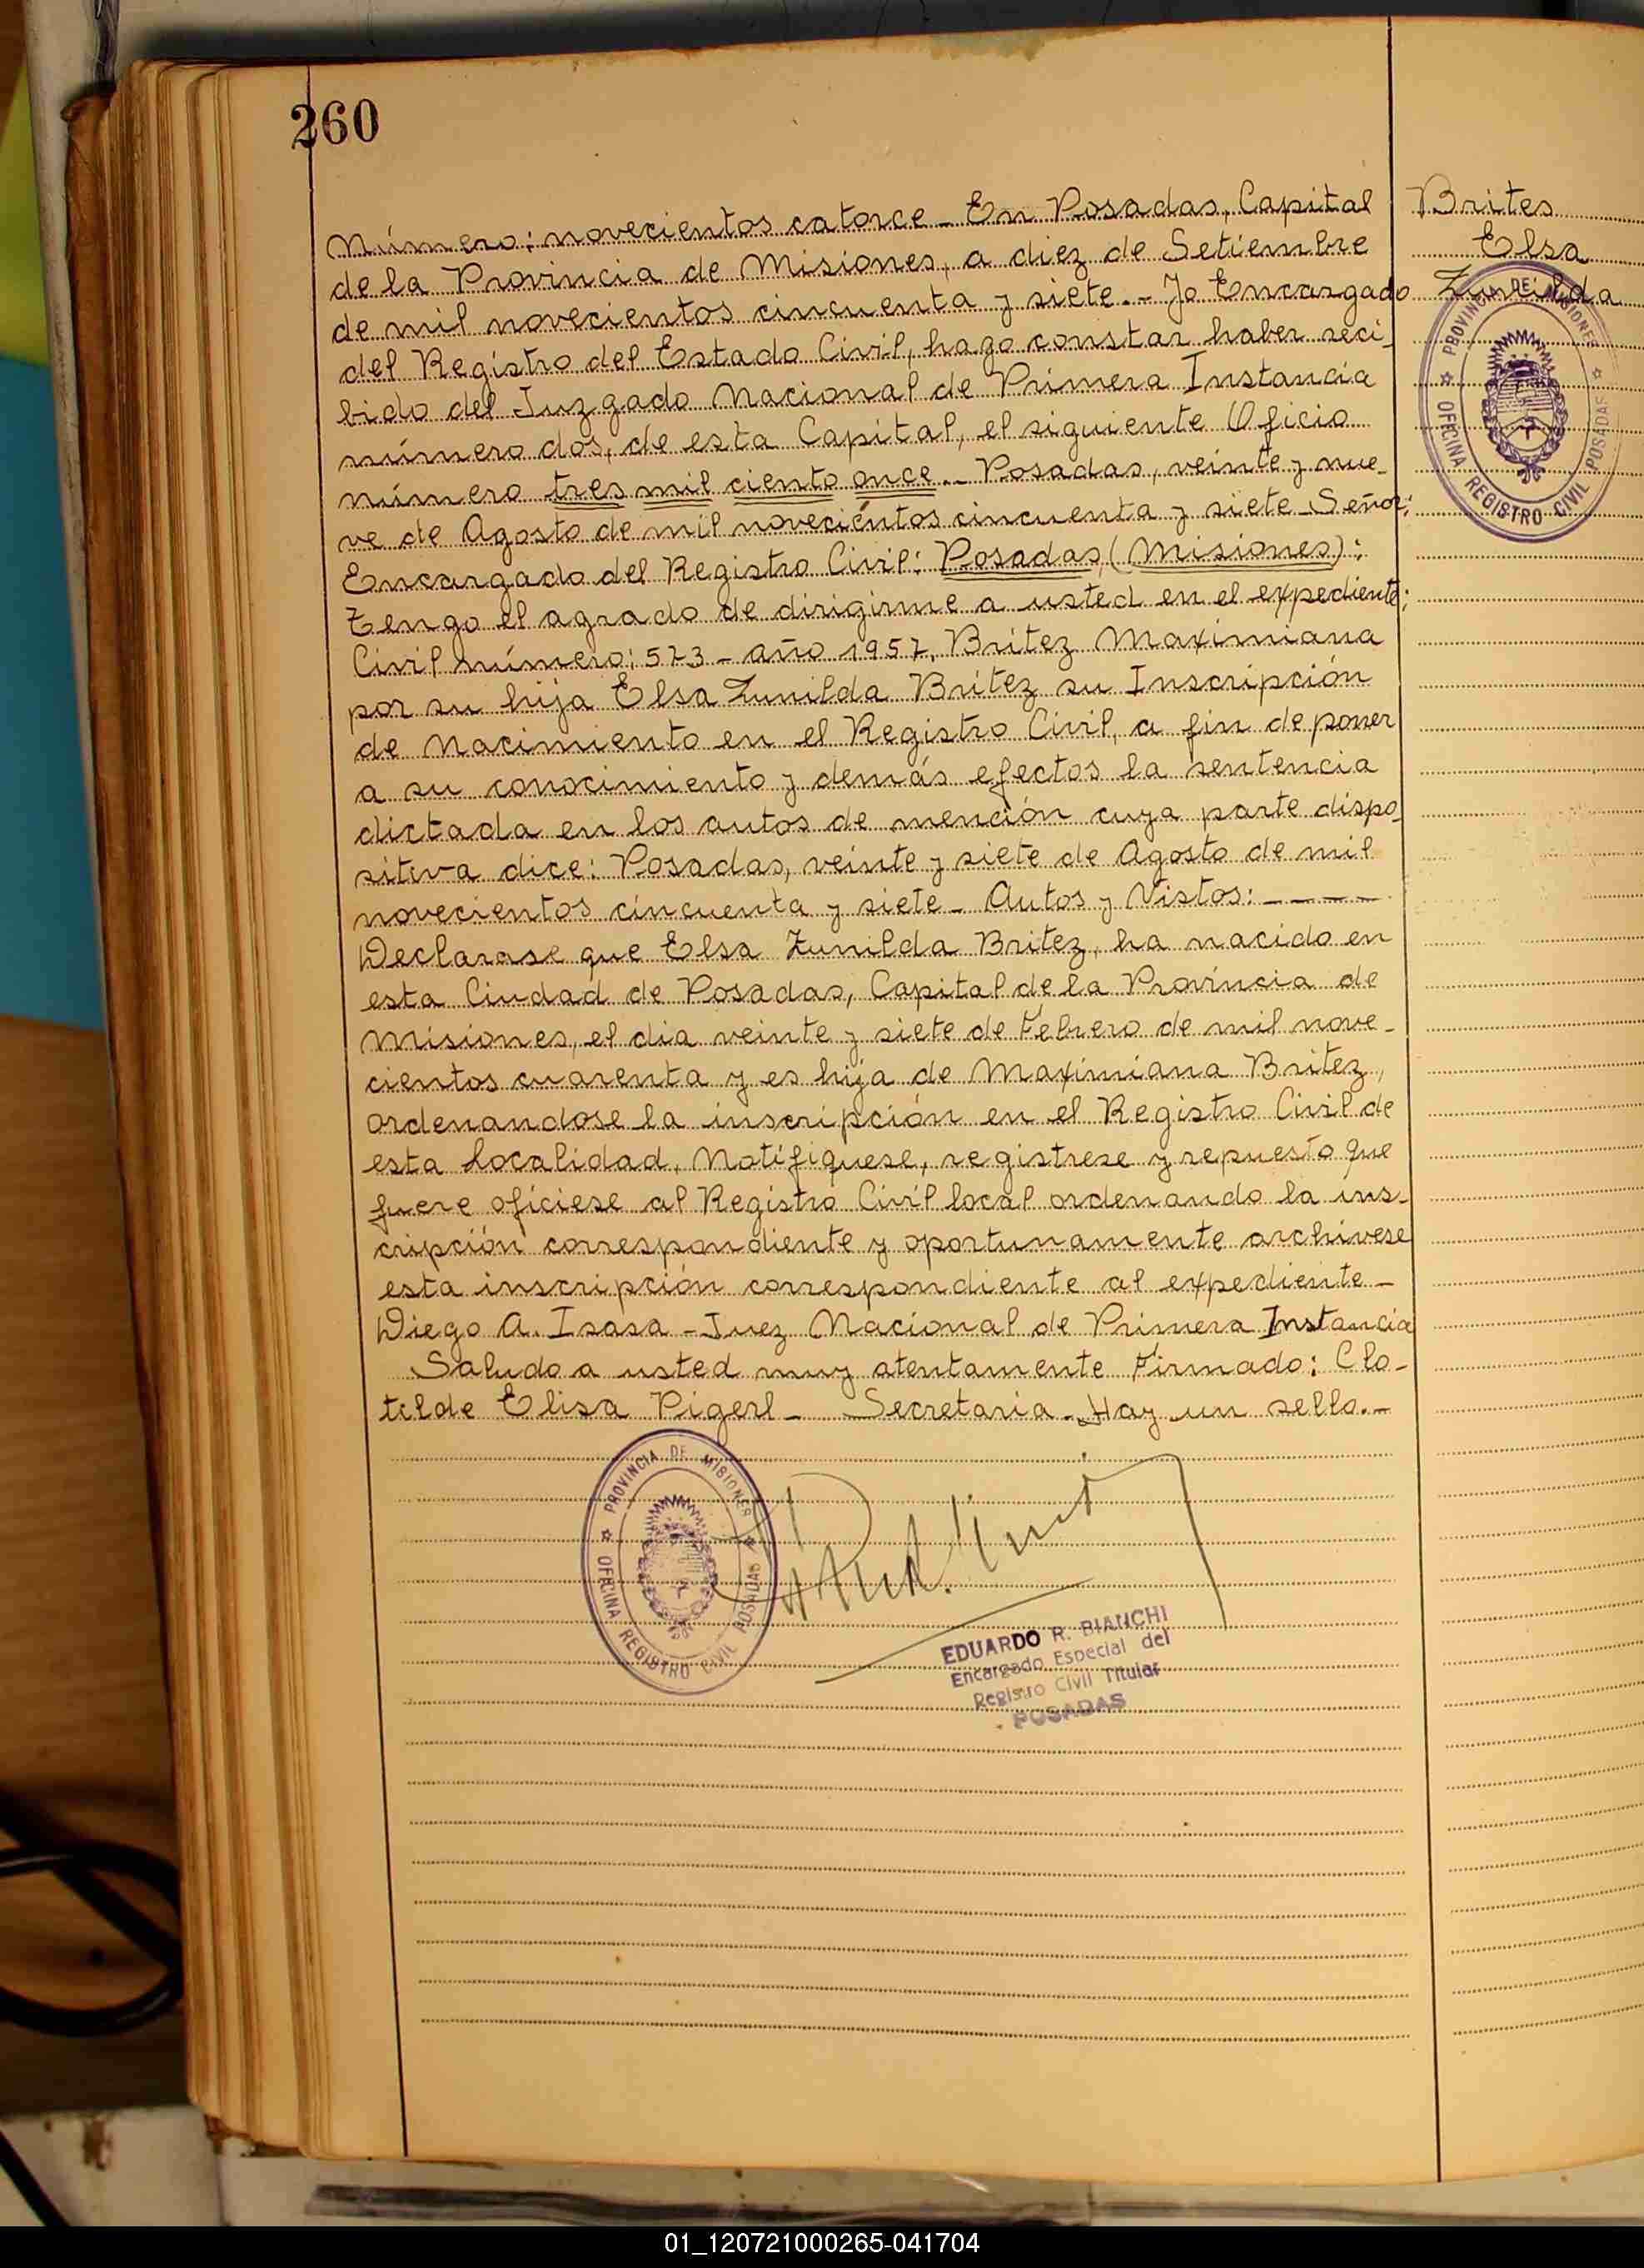 260
Número: novecientos catorce – En Posadas, Capital
de la Provincia de Misiones, a diez de Setiembre
de mil novecientos cincuenta y siete.– Yo Encargado
del Registro del Estado Civil, hago constar haber reci-
bido del Juzgado Nacional de Primera Instancia
número dos, de esta Capital, el siguiente Oficio
número tres mil ciento once.– Posadas, veinte y nue-
ve de Agosto de mil novecientos cincuenta y siete – Señor:
Encargado del Registro Civil: Posadas, (Misiones):
Tengo el agrado de dirigirme a usted en el expediente:
Civil número: 573 – año 1957, Britez Maximiana
por su hija Elsa Zunilda Britez su Inscripción
de Nacimiento en el Registro Civil, a fin de poner
a su conocimiento y demás efectos la sentencia
dictada en los autos de mención cuya parte dispo-
sitiva dice: Posadas, veinte y siete de Agosto de mil
novecientos cincuenta y siete – Autos y Vistos: – – – –
Declarase que Elsa Zunilda Britez, ha nacido en
esta Ciudad de Posadas, Capital de la Provincia de
Misiones, el dia veinte y siete de Febrero de mil nove-
cientos cuarenta y es hija de Maximiana Britez,
ordenandose la inscripción en el Registro Civil de
esta Localidad, Notifiquese, registrese y repuesto que
fuere ofíciese al Registro Civil local ordenando la ins-
cripción correspondiente y oportunamente archivese
esta inscripción correspondiente al expediente –
Diego A. Isasa – Juez Nacional de Primera Instancia
Saludo a usted muy atentamente Firmado: Clo-
tilde Elisa Pigerl – Secretaria – Hay un sello.–
Brites
Elsa
Zunilda
PROVINCIA DE MISIONES
OFICINA REGISTRO CIVIL POSADAS
PROVINCIA DE MISIONES
OFICINA REGISTRO CIVIL POSADAS
EDUARDO R. BIANCHI
Encargado Especial del
Registro Civil Titular
POSADAS
01_120721000265-041704